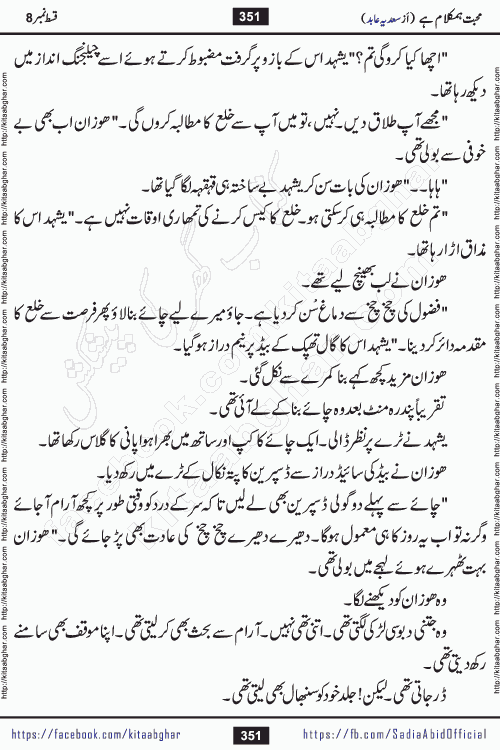 محبت ہمکلام ہے (از سعدیہ عابد) 351 قسط نمبر 8
"اچھا کیا کرو گی تم؟" یشہد اس کے بازو پر گرفت مضبوط کرتے ہوئے اسے چیلنجنگ انداز میں
دیکھ رہا تھا۔
"مجھے آپ طلاق دیں۔ نہیں، تو میں آپ سے خلع کا مطالبہ کروں گی۔" ھوزان اب بھی بے
خوفی سے بولی تھی۔
"ہاہا۔۔" ھوزان کی بات سن کر یشہد بے ساختہ ہی قہقہہ لگا گیا تھا۔
"تم خلع کا مطالبہ ہی کر سکتی ہو۔ خلع کا کیس کرنے کی تمھاری اوقات نہیں ہے۔" یشہد اس کا
مذاق اڑا رہا تھا۔
ھوزان نے لب بھینچ لیے تھے۔
"فضول کی چخ چخ سے دماغ سُن کر دیا ہے۔ جاؤ میرے لیے چائے بنا لاؤ پھر فرصت سے خلع کا
مقدمہ دائر کر دینا۔" یشہد اس کا گال تھپک کے بیڈ پر نیم دراز ہو گیا۔
ھوزان مزید کچھ کہے بنا کمرے سے نکل گئی۔
تقریباً پندرہ منٹ بعد وہ چائے بنا کے لے آئی تھی۔
یشہد نے ٹرے پر نظر ڈالی۔ ایک چائے کا کپ اور ساتھ میں بھرا ہوا پانی کا گلاس رکھا تھا۔
ھوزان نے بیڈ کی سائیڈ دراز سے ڈسپرین کا پتہ نکال کے ٹرے میں رکھ دیا۔
"چائے سے پہلے دو گولی ڈسپرین بھی لے لیں تاکہ سر کے درد کو وقتی طور پر کچھ آرام آ جائے
وگرنہ تو اب یہ روز کا ہی معمول ہو گا۔ دھیرے دھیرے چخ چخ کی عادت بھی پڑ جائے گی۔" ھوزان
بہت ٹھہرے ہوئے لہجے میں بولی تھی۔
وہ ھوزان کو دیکھنے لگا۔
وہ جتنی دبو سی لڑکی لگتی تھی۔ اتنی تھی نہیں۔ آرام سے بحث بھی کر لیتی تھی۔ اپنا موقف بھی سامنے
رکھ دیتی تھی۔
ڈر جاتی تھی۔ لیکن! جلد خود کو سنبھال بھی لیتی تھی۔
https://facebook.com/kitaabghar 351 https://fb.com/SadiaAbidOfficial
http://kitaabghar.com http://kitaabghar.com http://kitaabghar.com http://kitaabghar.com http://kitaabghar.com http://kitaabghar.com http://kitaabghar.com
http://kitaabghar.com http://kitaabghar.com http://kitaabghar.com http://kitaabghar.com http://kitaabghar.com http://kitaabghar.com http://kitaabghar.com